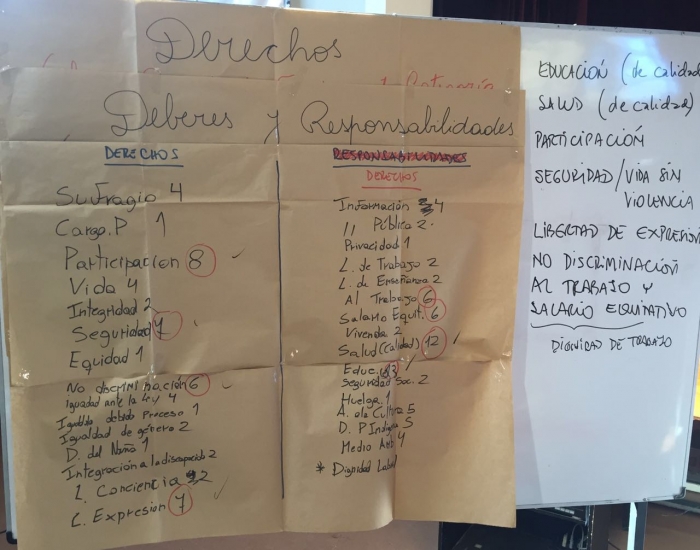 Derechos
1 Categoría
Deberes y Responsabilidades
DERECHOS
Sufragio 4
Cargo. P 1
Participacion 8
Vida 4
Integridad 2
Seguridad 7
Equidad 1
No discriminación 6
Igualdad ante la ley 4
Igualdad debido Proceso 1
Igualdad de género 2
D. del Niño 1
Integración a la discapacidad 2
L. Conciencia 2
L. Expresion 7
RESPONSABILIDADES
DERECHOS
Información 4
11 Pública 2.
Privacidad 1
L. de Trabajo 2
L. de Enseñanza 2
Al Trabajo 6
Salario Equit. 6
Vivenda 2
Salud (Calidad) 12
Educ. 13
Seguridad Soc. 2
Huelga. 1
A. ola Cultura 5
D. P Indig. 5
Medio Amb 4
* Dignidad Labor
EDUCACIÓN (de calidad
SALUD (de calidad)
PARTICIPACIÓN
SEGURIDAD/VIDA SIN
VIOLENCIA
LIBERTAD DE EXPRESIÓN
NO DISCRIMINACIÓN
AL TRABAJO Y
SALARIO EQUITATIVO
DIGNIDAD DE TRABAJO